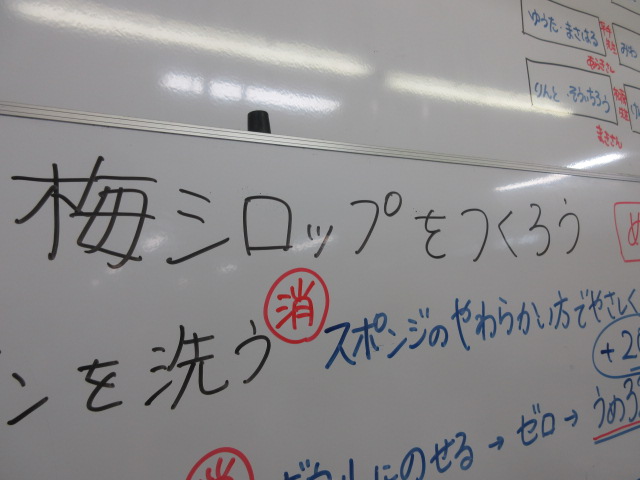 ゆうた・まさはる
りんと・そういちろう
まきさん
梅シロップをつくろう
め
ンを洗う 消 スポンジのやわらかい方でやさしく
+20
消 にのせる→ゼロ→うめ3